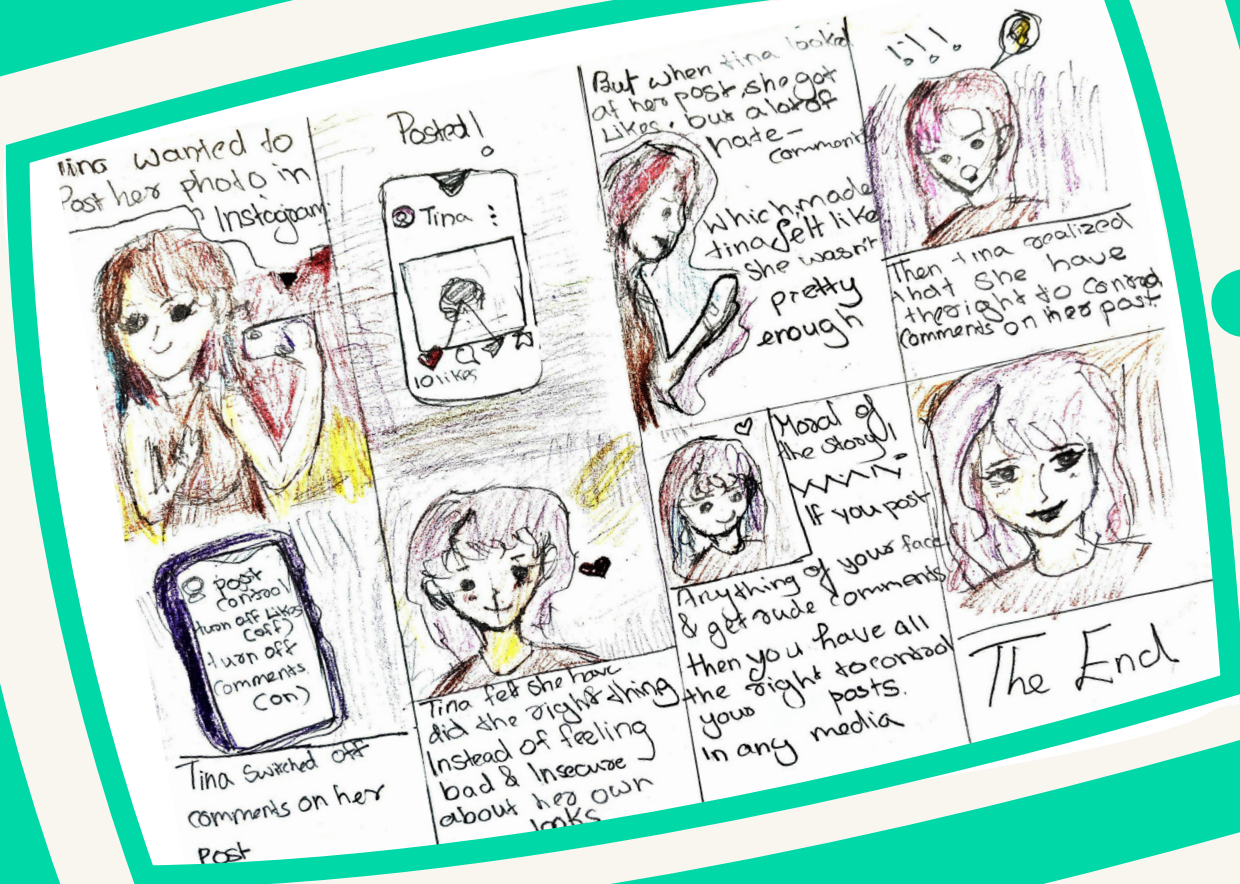 Tina wanted to
Post her photo in
Instagram
Posted!
Tina
10 likes
But when tina looked
at her post, she got
Likes, but a lot of
hate-
comment
which made
tina felt like
she wasn't
pretty
enough
!!!
Then, tina realized
that she have
the right to control
comments on her post.
Post
control
turn off Likes
(off)
turn off
comments
(on)
Tina switched off
comments on her
Post
Tina felt she have
did the right thing
Instead of feeling
bad & Insecure
about her own
looks
Moral of
the story!
If you post
Anything of your face
& get rude comments
then you have all
the right to control
your posts.
In any media
The End